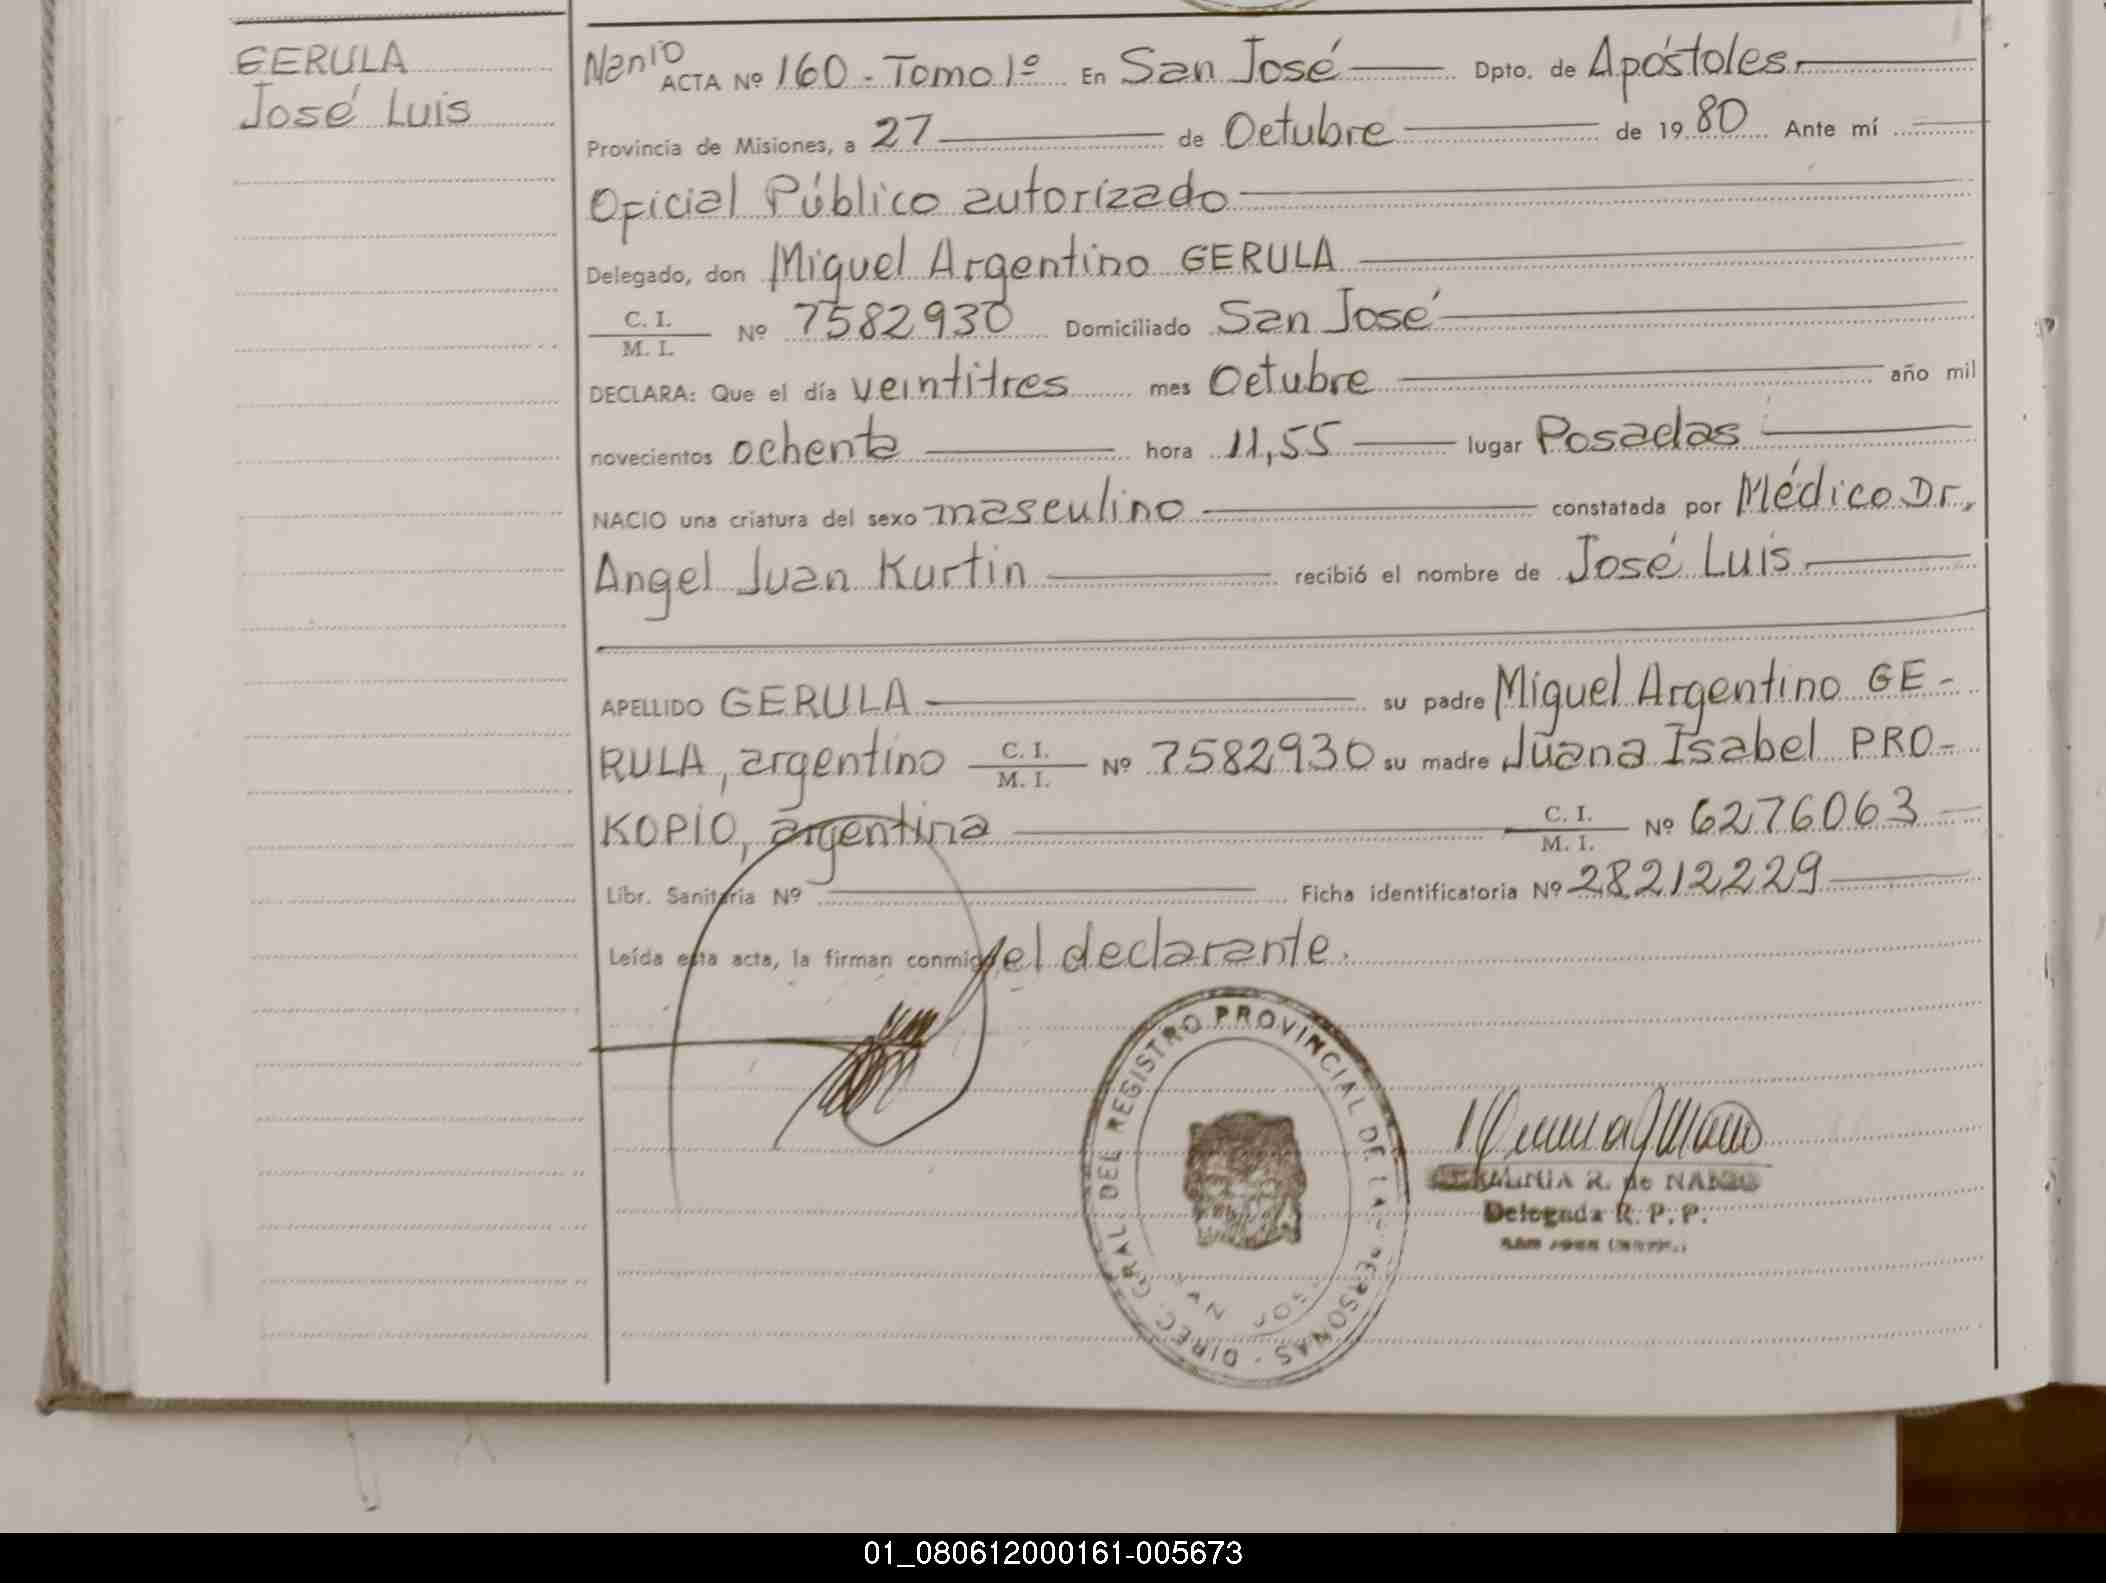 GERULA
José Luis
Nanio
ACTA Nº 160 - Tomo 1º En San José Dpto. de Apóstoles
Provincia de Misiones, a 27 de Octubre de 1980 Ante mí
Oficial Público autorizado
Delegado, don Miguel Argentino GERULA
C. I.
M. I. Nº 7582930 Domiciliado San José
DECLARA: Que el día veintitres mes Octubre año mil
novecientos ochenta hora 11,55 lugar Posadas
NACIO una criatura del sexo masculino constatada por Médico Dr.
Angel Juan Kurtin recibió el nombre de José Luis
APELLIDO GERULA su padre Miguel Argentino GE-
RULA, argentino C. I. M. I. Nº 7582930 su madre Juana Isabel PRO-
KOPIO, argentina C. I. M. I. Nº 6276063
Libr. Sanitaria Nº Ficha identificatoria Nº 28212229
Leída esta acta, la firman conmigo el declarante.
DIREC. GRAL. DEL REGISTRO PROVINCIAL DE LAS PERSONAS
SAN JOSE
R. de NANIO
Delegada R. P. P.
01_080612000161-005673